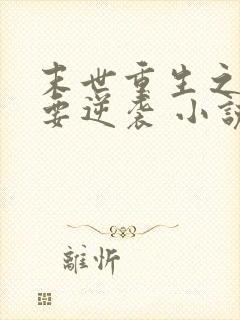 末世重生之
要逆袭 小说
離忻